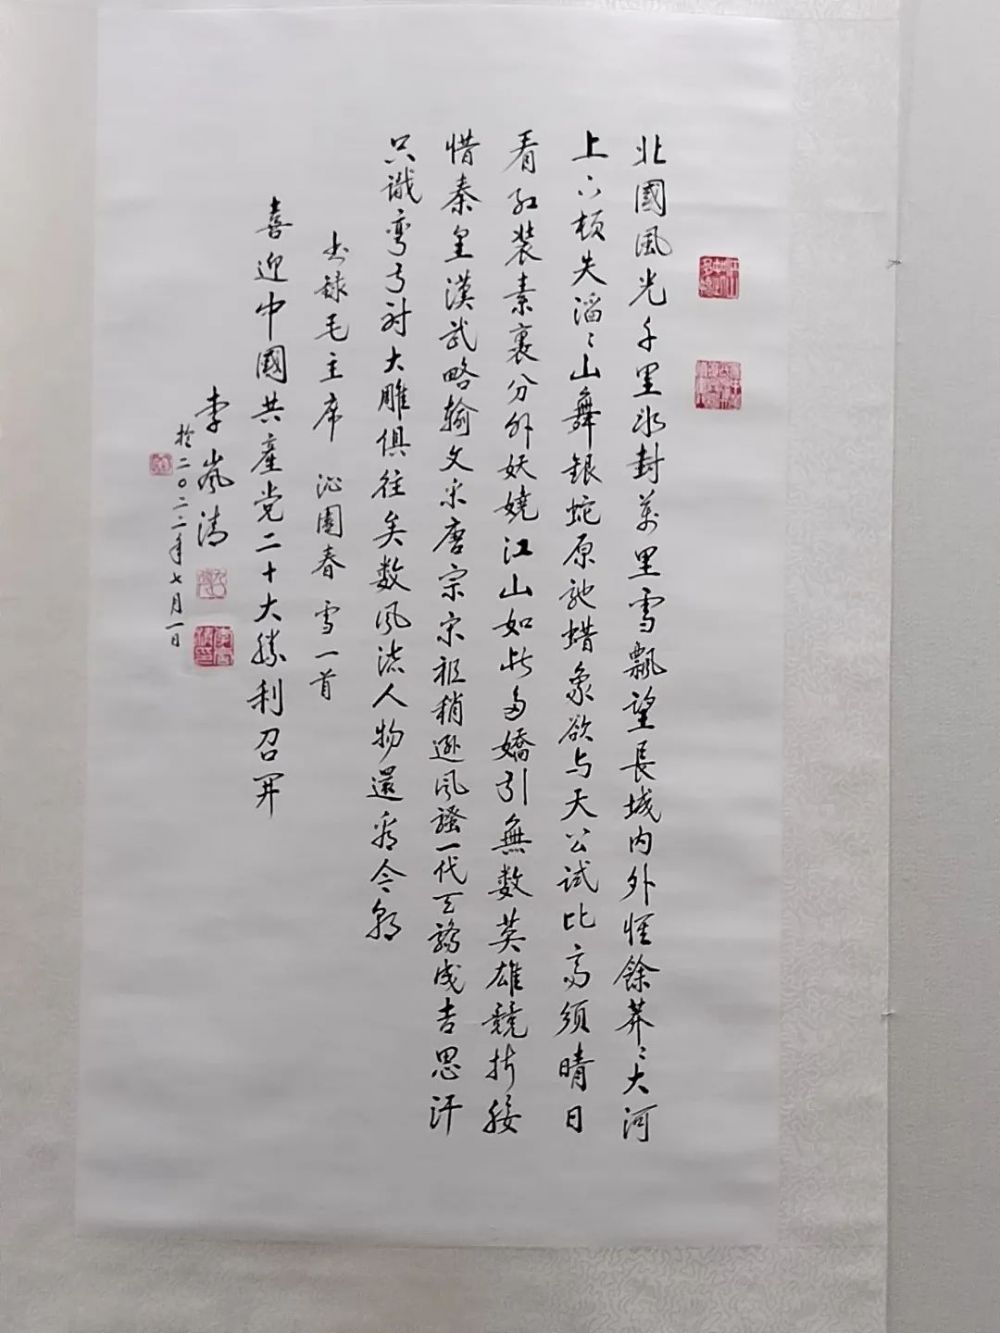 北國風光千里冰封萬里雪飄望長城内外惟餘莽〻大河
上下頓失滔〻山舞銀蛇原馳蜡象欲与天公試比高須晴日
看紅装素裹分外妖嬈江山如此多嬌引無数英雄競折腰
惜秦皇漢武略輸文采唐宗宋祖稍遜风騷一代天驕成吉思汗
只識弯弓射大雕俱往矣数风流人物還看今朝
書録毛主席 沁園春 雪一首
喜迎中國共產党二十大勝利召开
李岚清
於二〇二二年七月一日